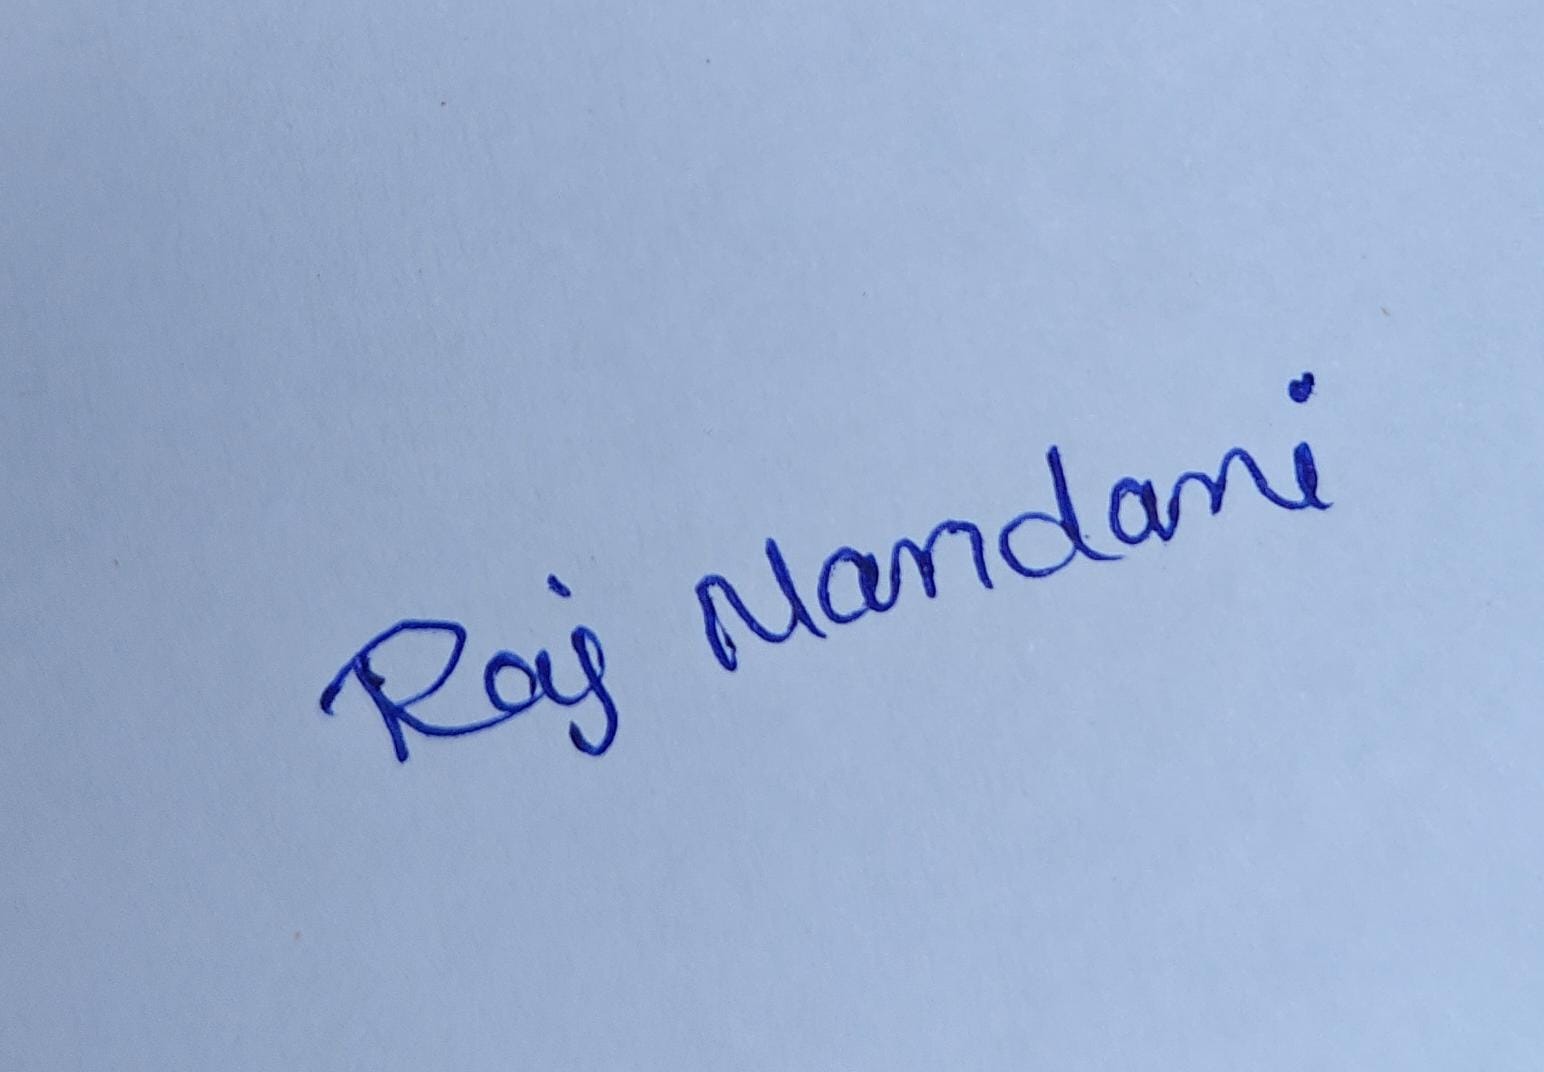 Raj Nandani